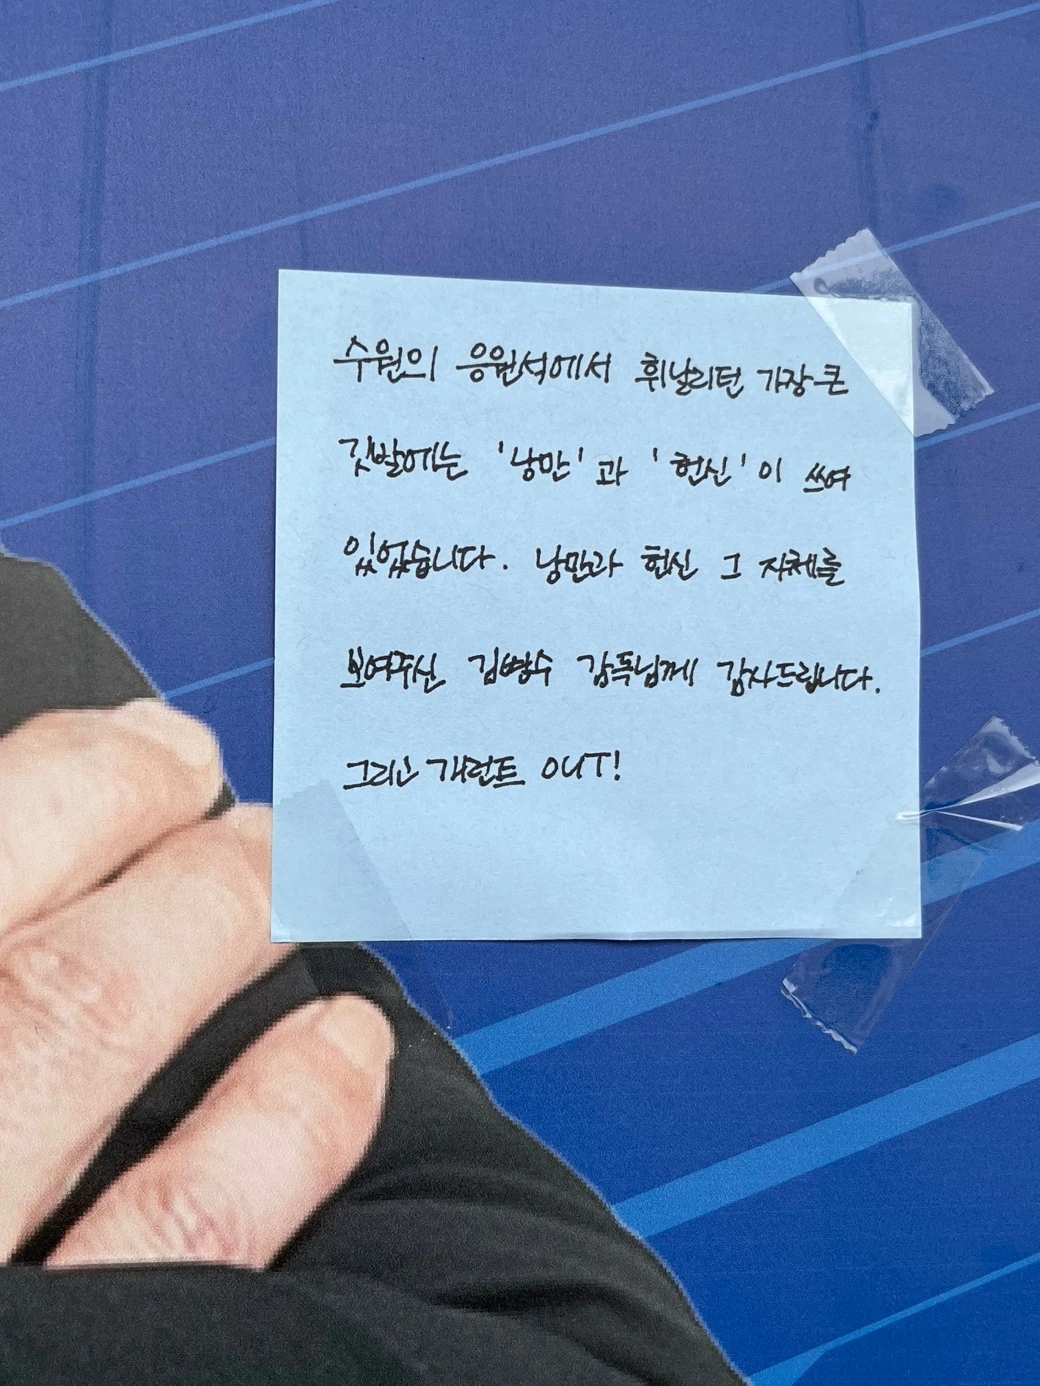 수원의 응원석에서 휘날리던 가장 큰
깃발에는 '낭만'과 '헌신'이 쓰여
있었습니다. 낭만과 헌신 그 자체를
보여주신 김병수 감독님께 감사드립니다.
그리고 개런트 OUT!